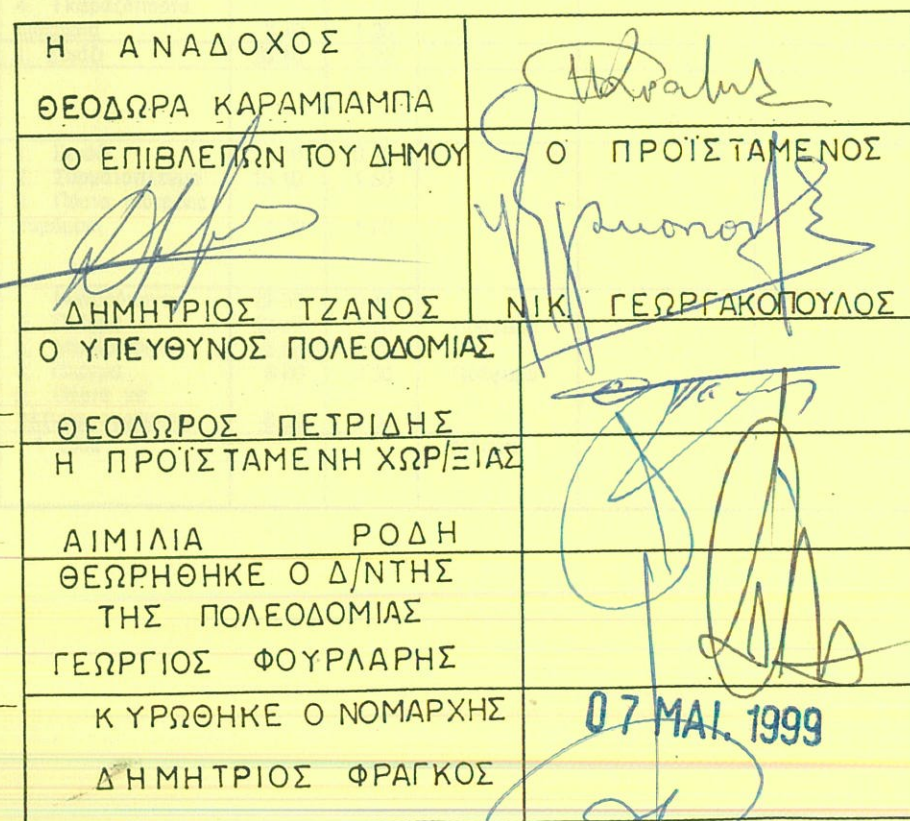 Η ΑΝΑΔΟΧΟΣ
ΘΕΟΔΩΡΑ ΚΑΡΑΜΠΑΜΠΑ
Ο ΕΠΙΒΛΕΠΩΝ ΤΟΥ ΔΗΜΟΥ
ΔΗΜΗΤΡΙΟΣ ΤΖΑΝΟΣ
Ο ΠΡΟΪΣΤΑΜΕΝΟΣ
ΝΙΚ. ΓΕΩΡΓΑΚΟΠΟΥΛΟΣ
Ο ΥΠΕΥΘΥΝΟΣ ΠΟΛΕΟΔΟΜΙΑΣ
ΘΕΟΔΩΡΟΣ ΠΕΤΡΙΔΗΣ
Η ΠΡΟΪΣΤΑΜΕΝΗ ΧΩΡ/ΞΙΑΣ
ΑΙΜΙΛΙΑ ΡΟΔΗ
ΘΕΩΡΗΘΗΚΕ Ο Δ/ΝΤΗΣ
ΤΗΣ ΠΟΛΕΟΔΟΜΙΑΣ
ΓΕΩΡΓΙΟΣ ΦΟΥΡΛΑΡΗΣ
ΚΥΡΩΘΗΚΕ Ο ΝΟΜΑΡΧΗΣ
07 ΜΑΙ. 1999
ΔΗΜΗΤΡΙΟΣ ΦΡΑΓΚΟΣ